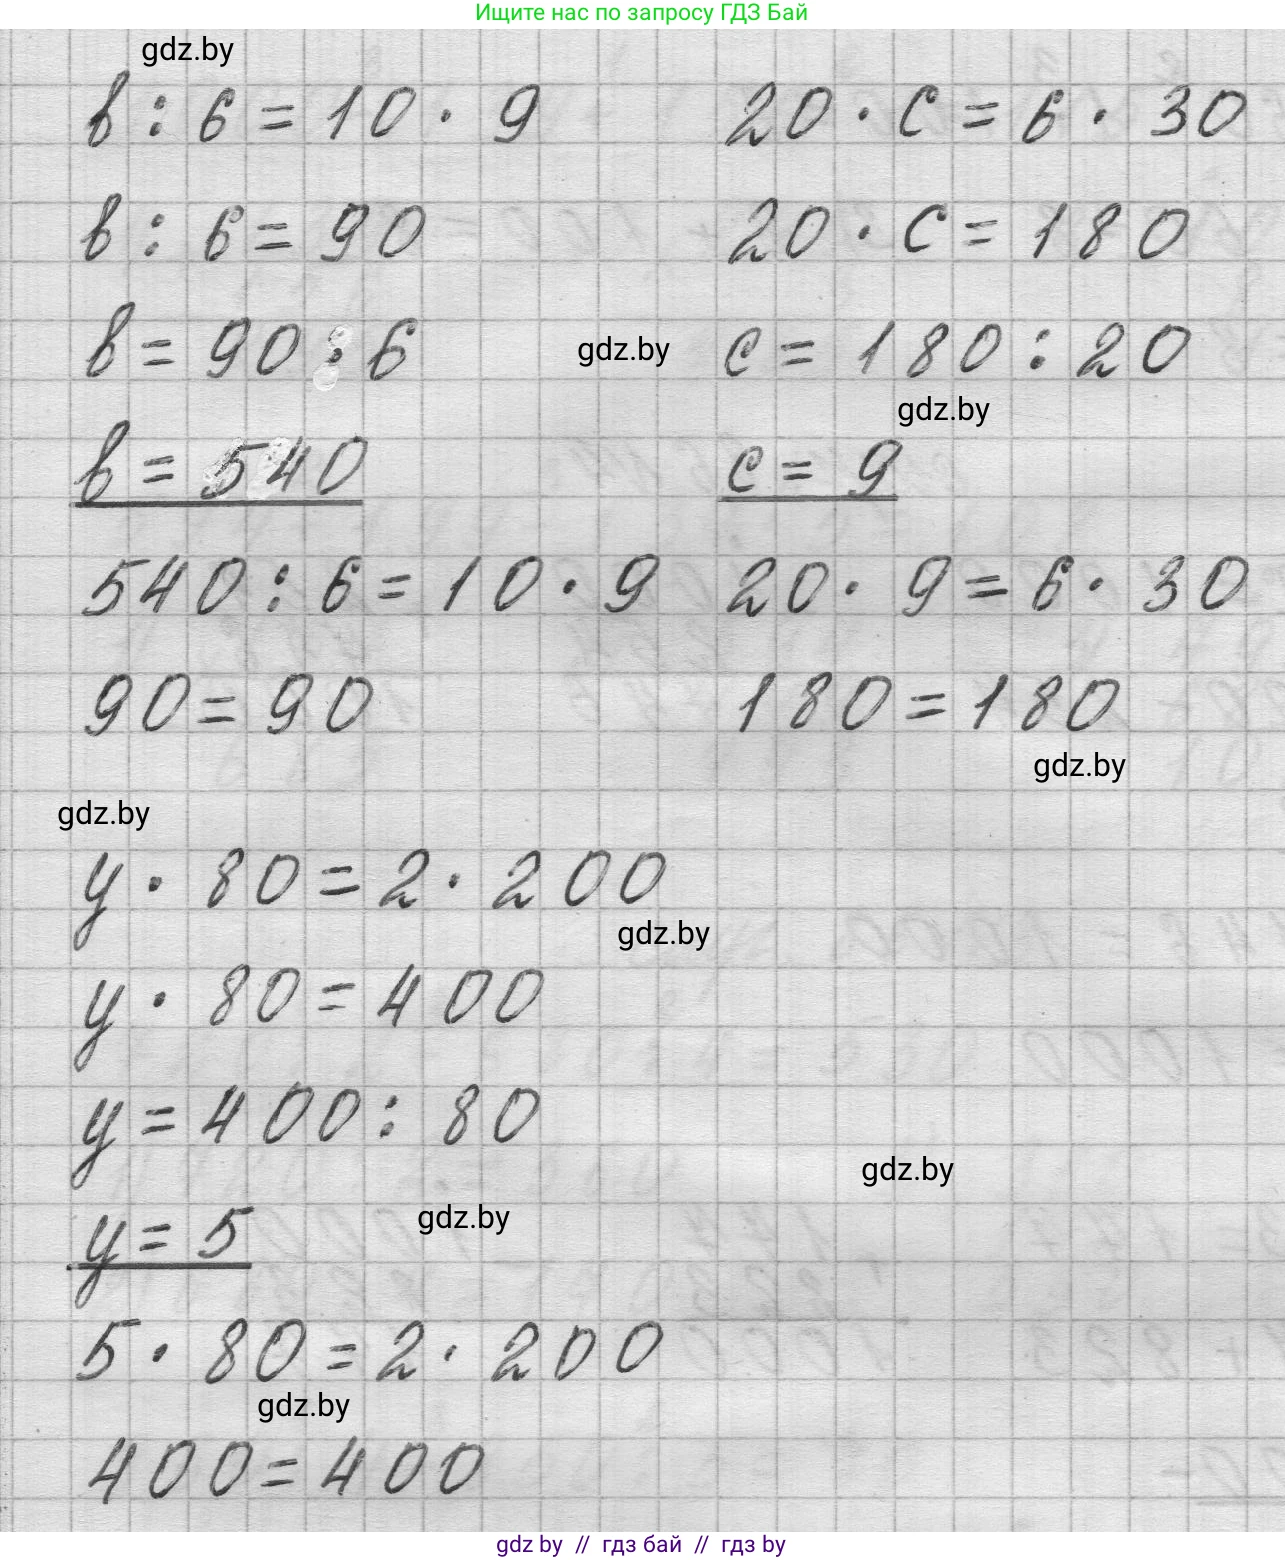 Ищите нас по запросу ГДЗ Бай
gdz.by
в : 6 = 10 · 9
в : 6 = 90
в = 90 · 6
в = 540
540 : 6 = 10 · 9
90 = 90
20 · с = 6 · 30
20 · с = 180
gdz.by
с = 180 : 20
gdz.by
с = 9
20 · 9 = 6 · 30
180 = 180
gdz.by
gdz.by
у · 80 = 2 · 200
gdz.by
у · 80 = 400
у = 400 : 80
gdz.by
у = 5
gdz.by
5 · 80 = 2 · 200
gdz.by
400 = 400
gdz by // гдз бай // гдз by